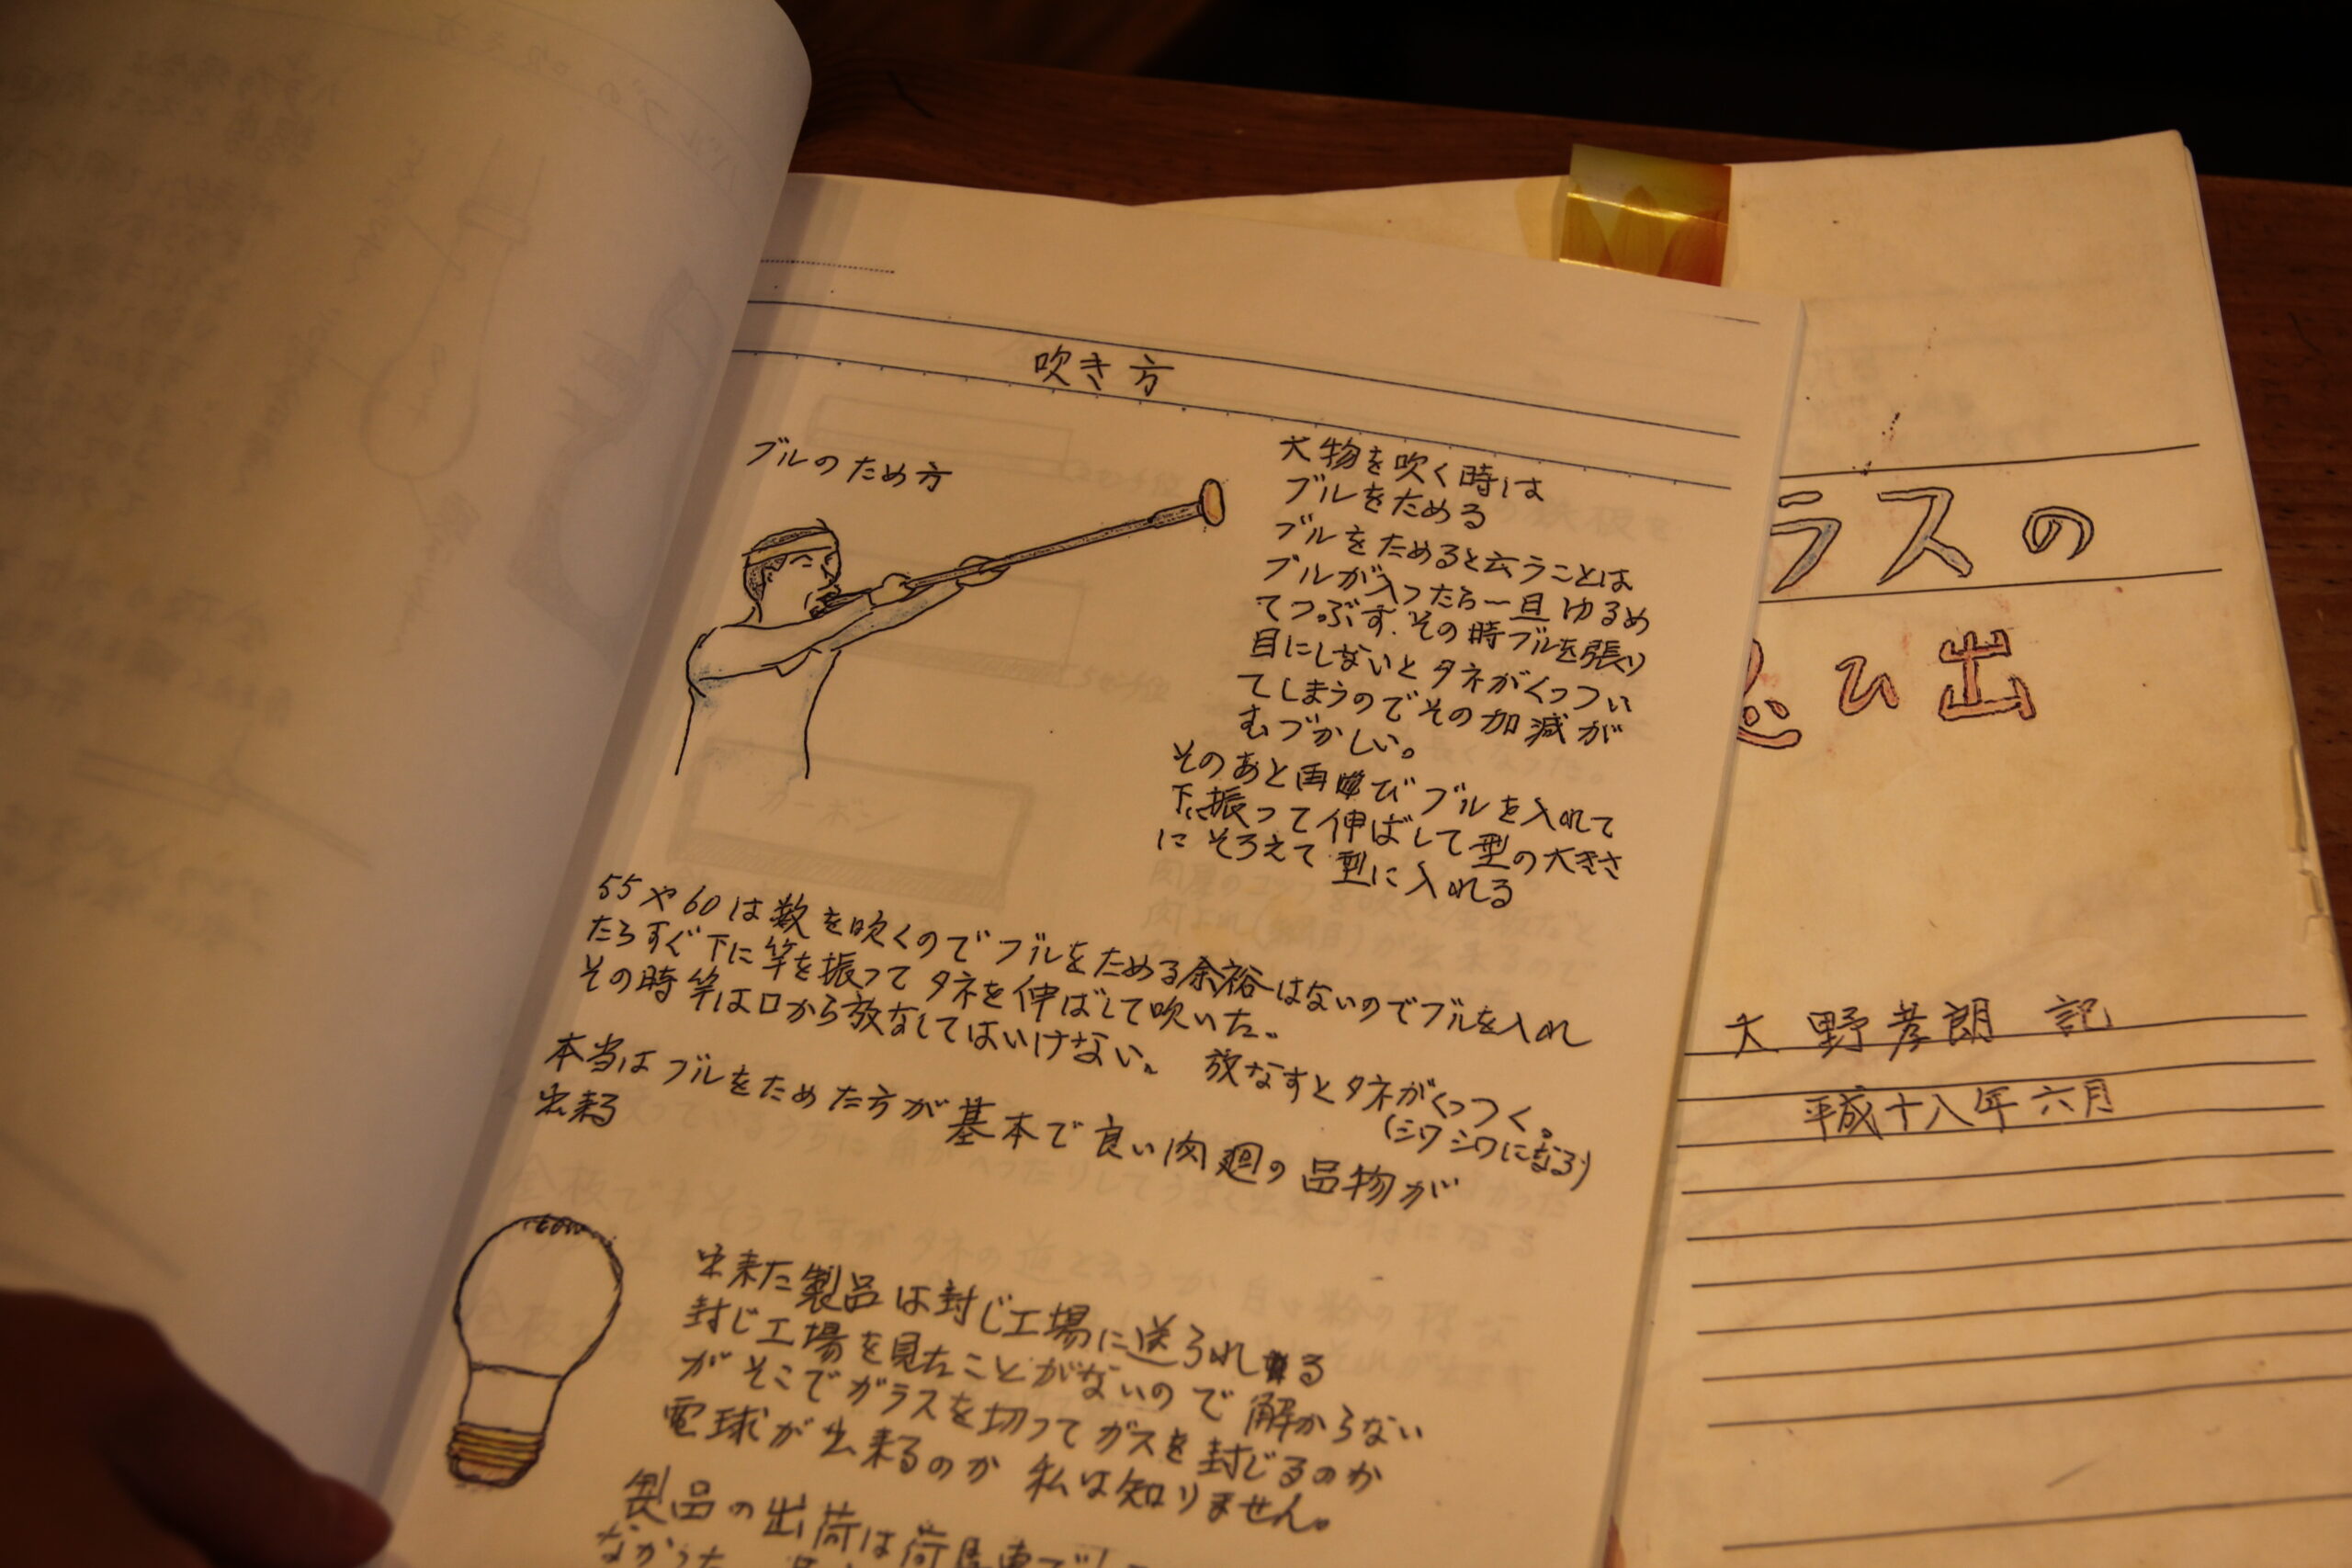 吹き方
ブルのため方
大物を吹く時は
ブルをためる
ブルをためると云うことは
ブルが入ったら一旦ゆるめ
てつぶす.その時ブルを張り
目にしないとタネがくっつい
てしまうのでその加減が
むづかしい。
そのあと再びブルを入れて
下に振って伸ばして型の大きさ
にそろえて型に入れる
55や60は数を吹くのでブルをためる余裕はないのでブルを入れ
たらすぐ下に竿を振ってタネを伸ばして吹いた。
その時竿は口から放なしてはいけない。 放なすとタネがくっつく。
(シワシワになる)
本当はブルをためた方が基本で良い肉廻の品物が
出来る
60W
出来た製品は封じ工場に送られる
封じ工場を見たことがないので解からない
がそこでガラスを切ってガスを封じるのか
電球が出来るのか私は知りません。
製品の出荷は荷馬車で
なかった
ラスの
思ひ出
大野孝朗 記
平成十八年六月
カーボン